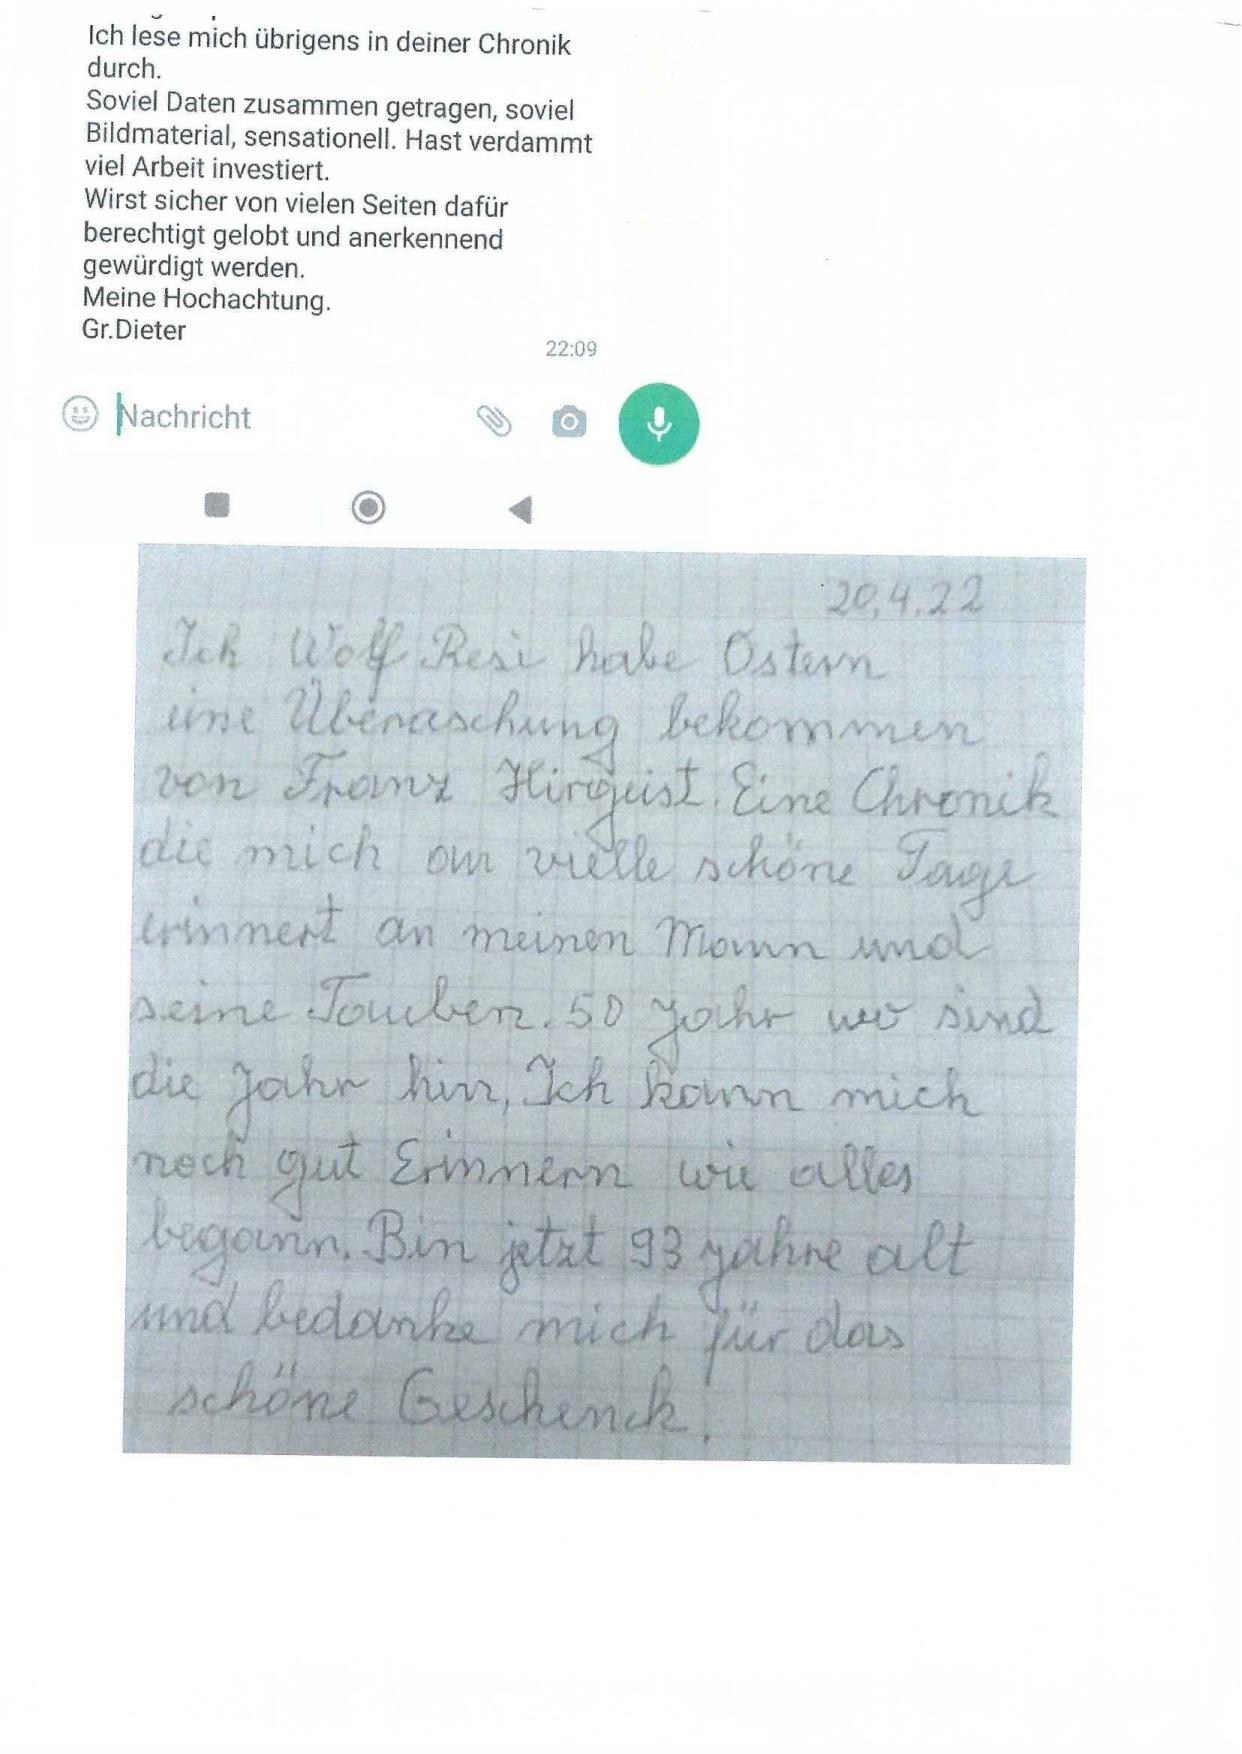 Ich lese mich übrigens in deiner Chronik
durch.
Soviel Daten zusammen getragen, soviel
Bildmaterial, sensationell. Hast verdammt
viel Arbeit investiert.
Wirst sicher von vielen Seiten dafür
berechtigt gelobt und anerkennend
gewürdigt werden.
Meine Hochachtung.
Gr.Dieter
22:09
Nachricht
20.4.22
Ich Wolf Resi habe Ostern
eine Überaschung bekommen
von Franz Hirquist. Eine Chronik
die mich an vielle schöne Tage
erinnert an meinen Mann und
seine Tauben. 50 Jahr wo sind
die Jahr hin, Ich kann mich
noch gut Erinnern wie alles
begann. Bin jetzt 93 jahre alt
und bedanke mich für das
schöne Geschenck.